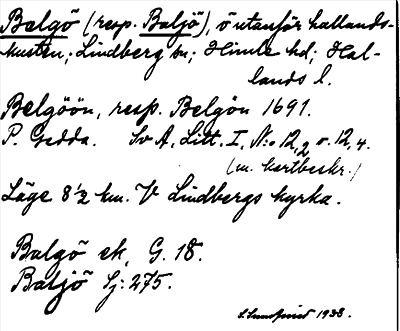 Balgö (resp. Baljö), ö utanför hallands-
kusten; Lindberg sn; Himle hd; Hal-
lands l.
Belgöön, resp. Belgön 1691.
P. Gedda. Sv A, Litt. I, No 12,2 o. 12,4.
(m. kartbeskr.)
Läge 8 1/2 km. V Lindbergs kyrka.
Balgö ek, G. 18.
Baljö Sj: 275.
S. Sundqvist 1938.